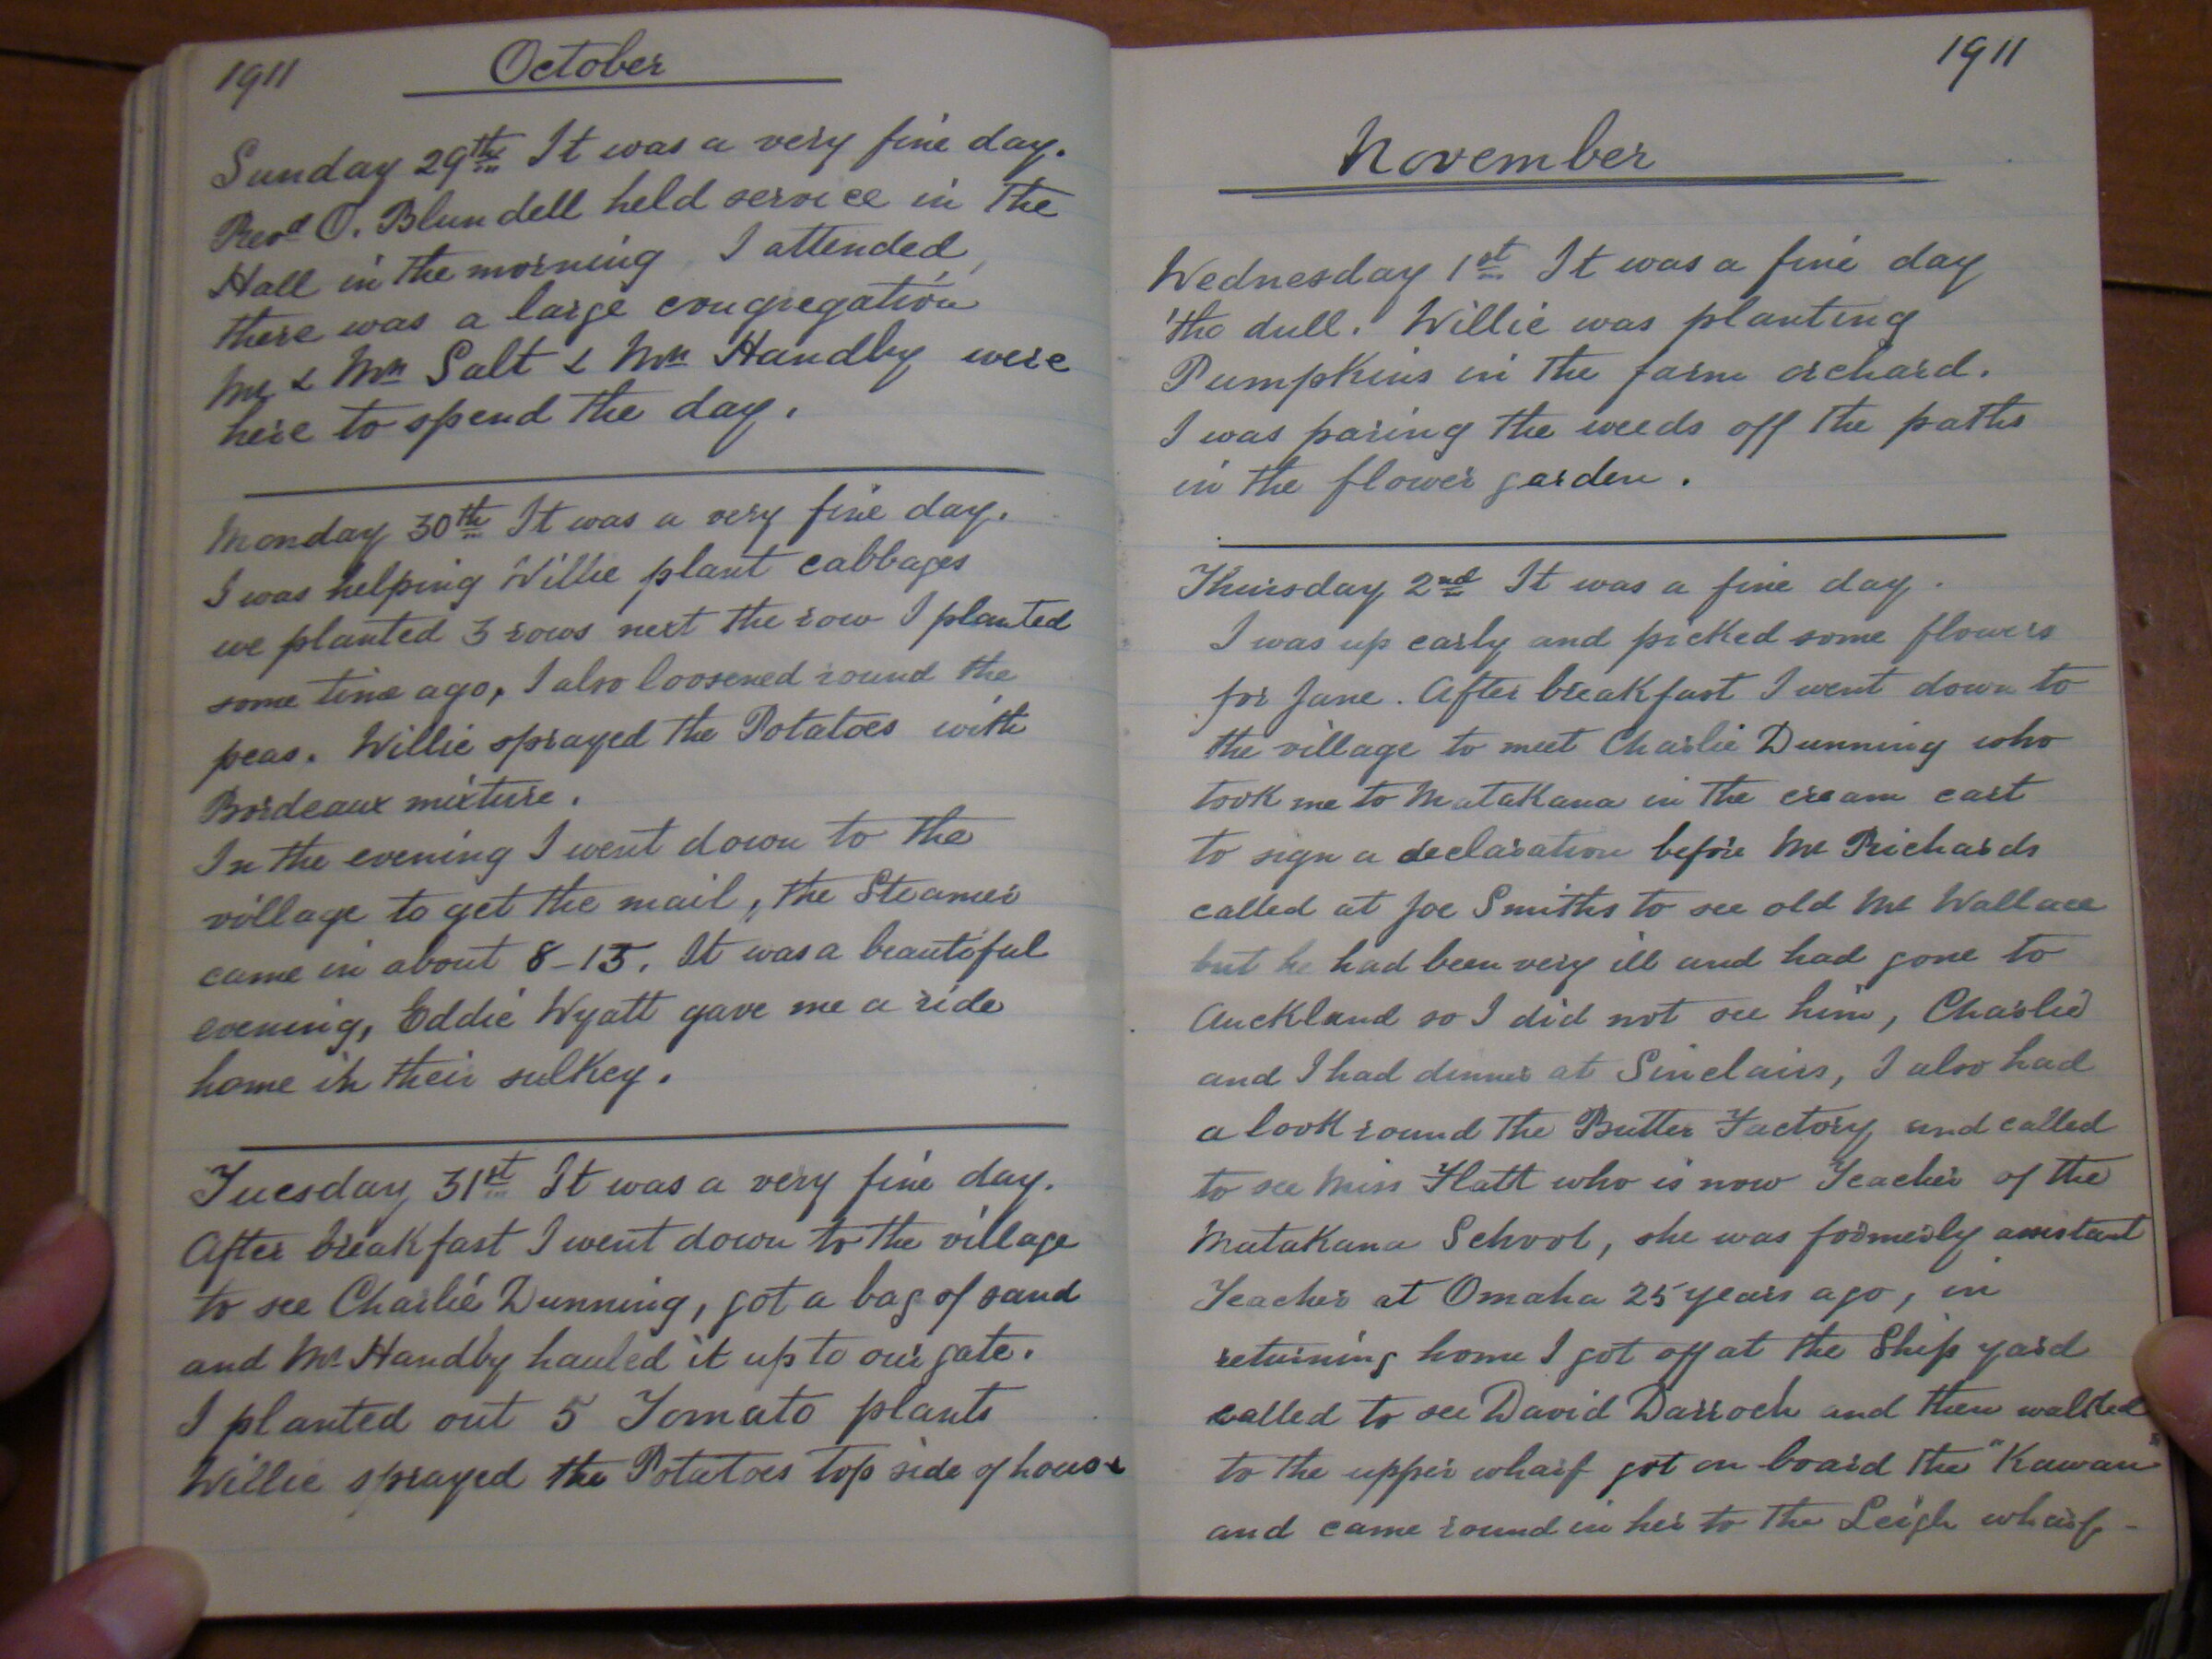 1911 October
Sunday 29th It was a very fine day.
Revd O. Blundell held service in the
Hall in the morning I attended,
there was a large congregation
Mr & Mrs Salt & Mrs Handby were
here to spend the day.
Monday 30th It was a very fine day.
I was helping Willie plant cabbages
we planted 3 rows next the row I planted
some time ago, I also loosened round the
peas. Willie sprayed the Potatoes with
Bordeaux mixture.
In the evening I went down to the
village to get the mail, the Steamer
came in about 8-15. It was a beautiful
evening, Eddie Wyatt gave me a ride
home in their sulkey.
Tuesday 31st It was a very fine day.
After breakfast I went down to the village
to see Charlie Dunning, got a bag of sand
and Mr Handby hauled it up to our gate.
I planted out 5 Tomato plants
Willie sprayed the Potatoes top side of house
1911
November
Wednesday 1st It was a fine day
'tho dull. Willie was planting
Pumpkins in the farm orchard.
I was paring the weeds off the paths
in the flower garden.
Thursday 2nd It was a fine day.
I was up early and picked some flowers
for Jane. After breakfast I went down to
the village to meet Charlie Dunning who
took me to Matakana in the cream cart
to sign a declaration before Mr Richards
called at Joe Smiths to see old Mr Wallace
but he had been very ill and had gone to
Auckland so I did not see him, Charlie
and I had dinner at Sinclairs, I also had
a look round the Butter Factory and called
to see Miss Flatt who is now Teacher of the
Matakana School, she was formerly assistant
Teacher at Omaha 25 years ago, in
returning home I got off at the Ship yard
called to see David Darroch and then walked
to the upper wharf got on board the "Kawau"
and came round in her to the Leigh wharf -